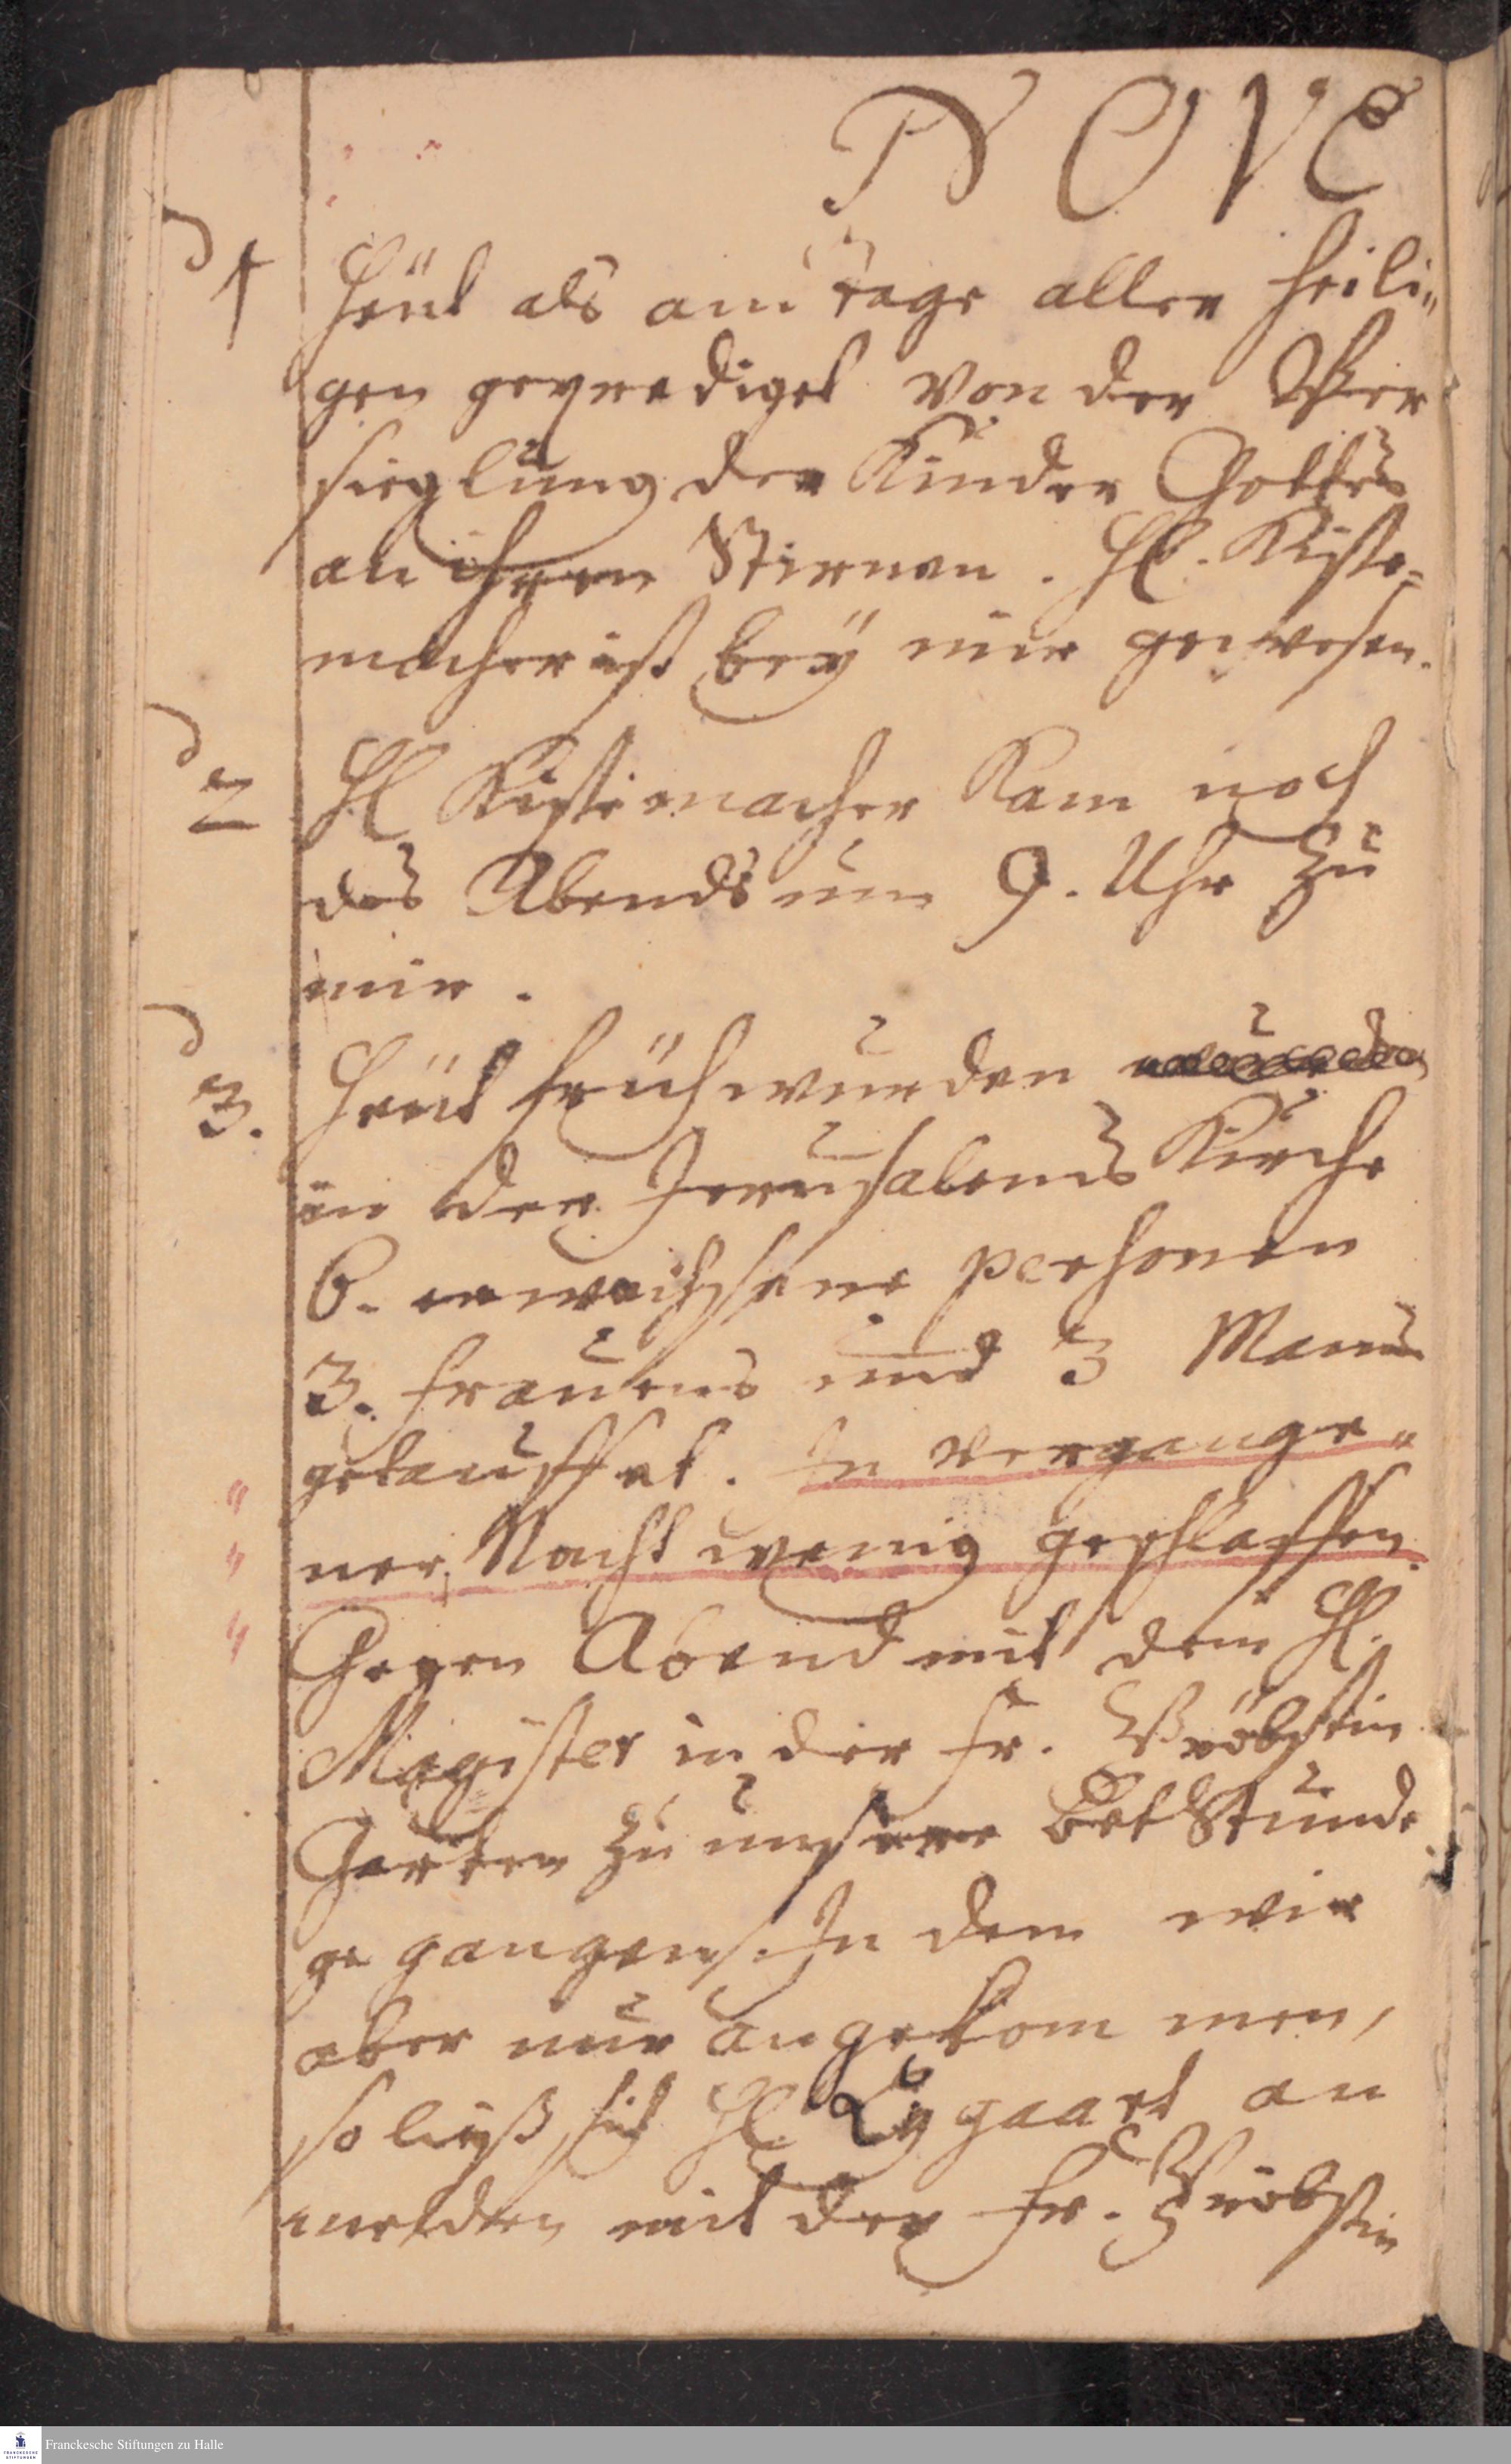 NOVE
1 Heüt als am tage aller Heili„
gen geprediget von der Ver
sieglung der Kinder Gottes
an ihren Stirnen. H. Kiste„
macher ist beÿ mir gewesen.
2 H Kistemacher Kam noch
des Abends um 9. Uhr zu
mir.
3. Heüt früh wurden
in der Jerusalems Kirche
6. erwachsene personen
3. frauens und 3 Manns
getauffet. In vergange„
ner Nacht wenig geschlaffen.
Gegen Abend mit dem H.
Magister in der fr. Pröbstin
Garten zu unsere BetStunde
gegangen. In dem wir
aber nur angekommen,
so ließ sich H. Lÿgaart an
melden mit der fr. Pröbstin
Franckesche Stiftungen zu Halle